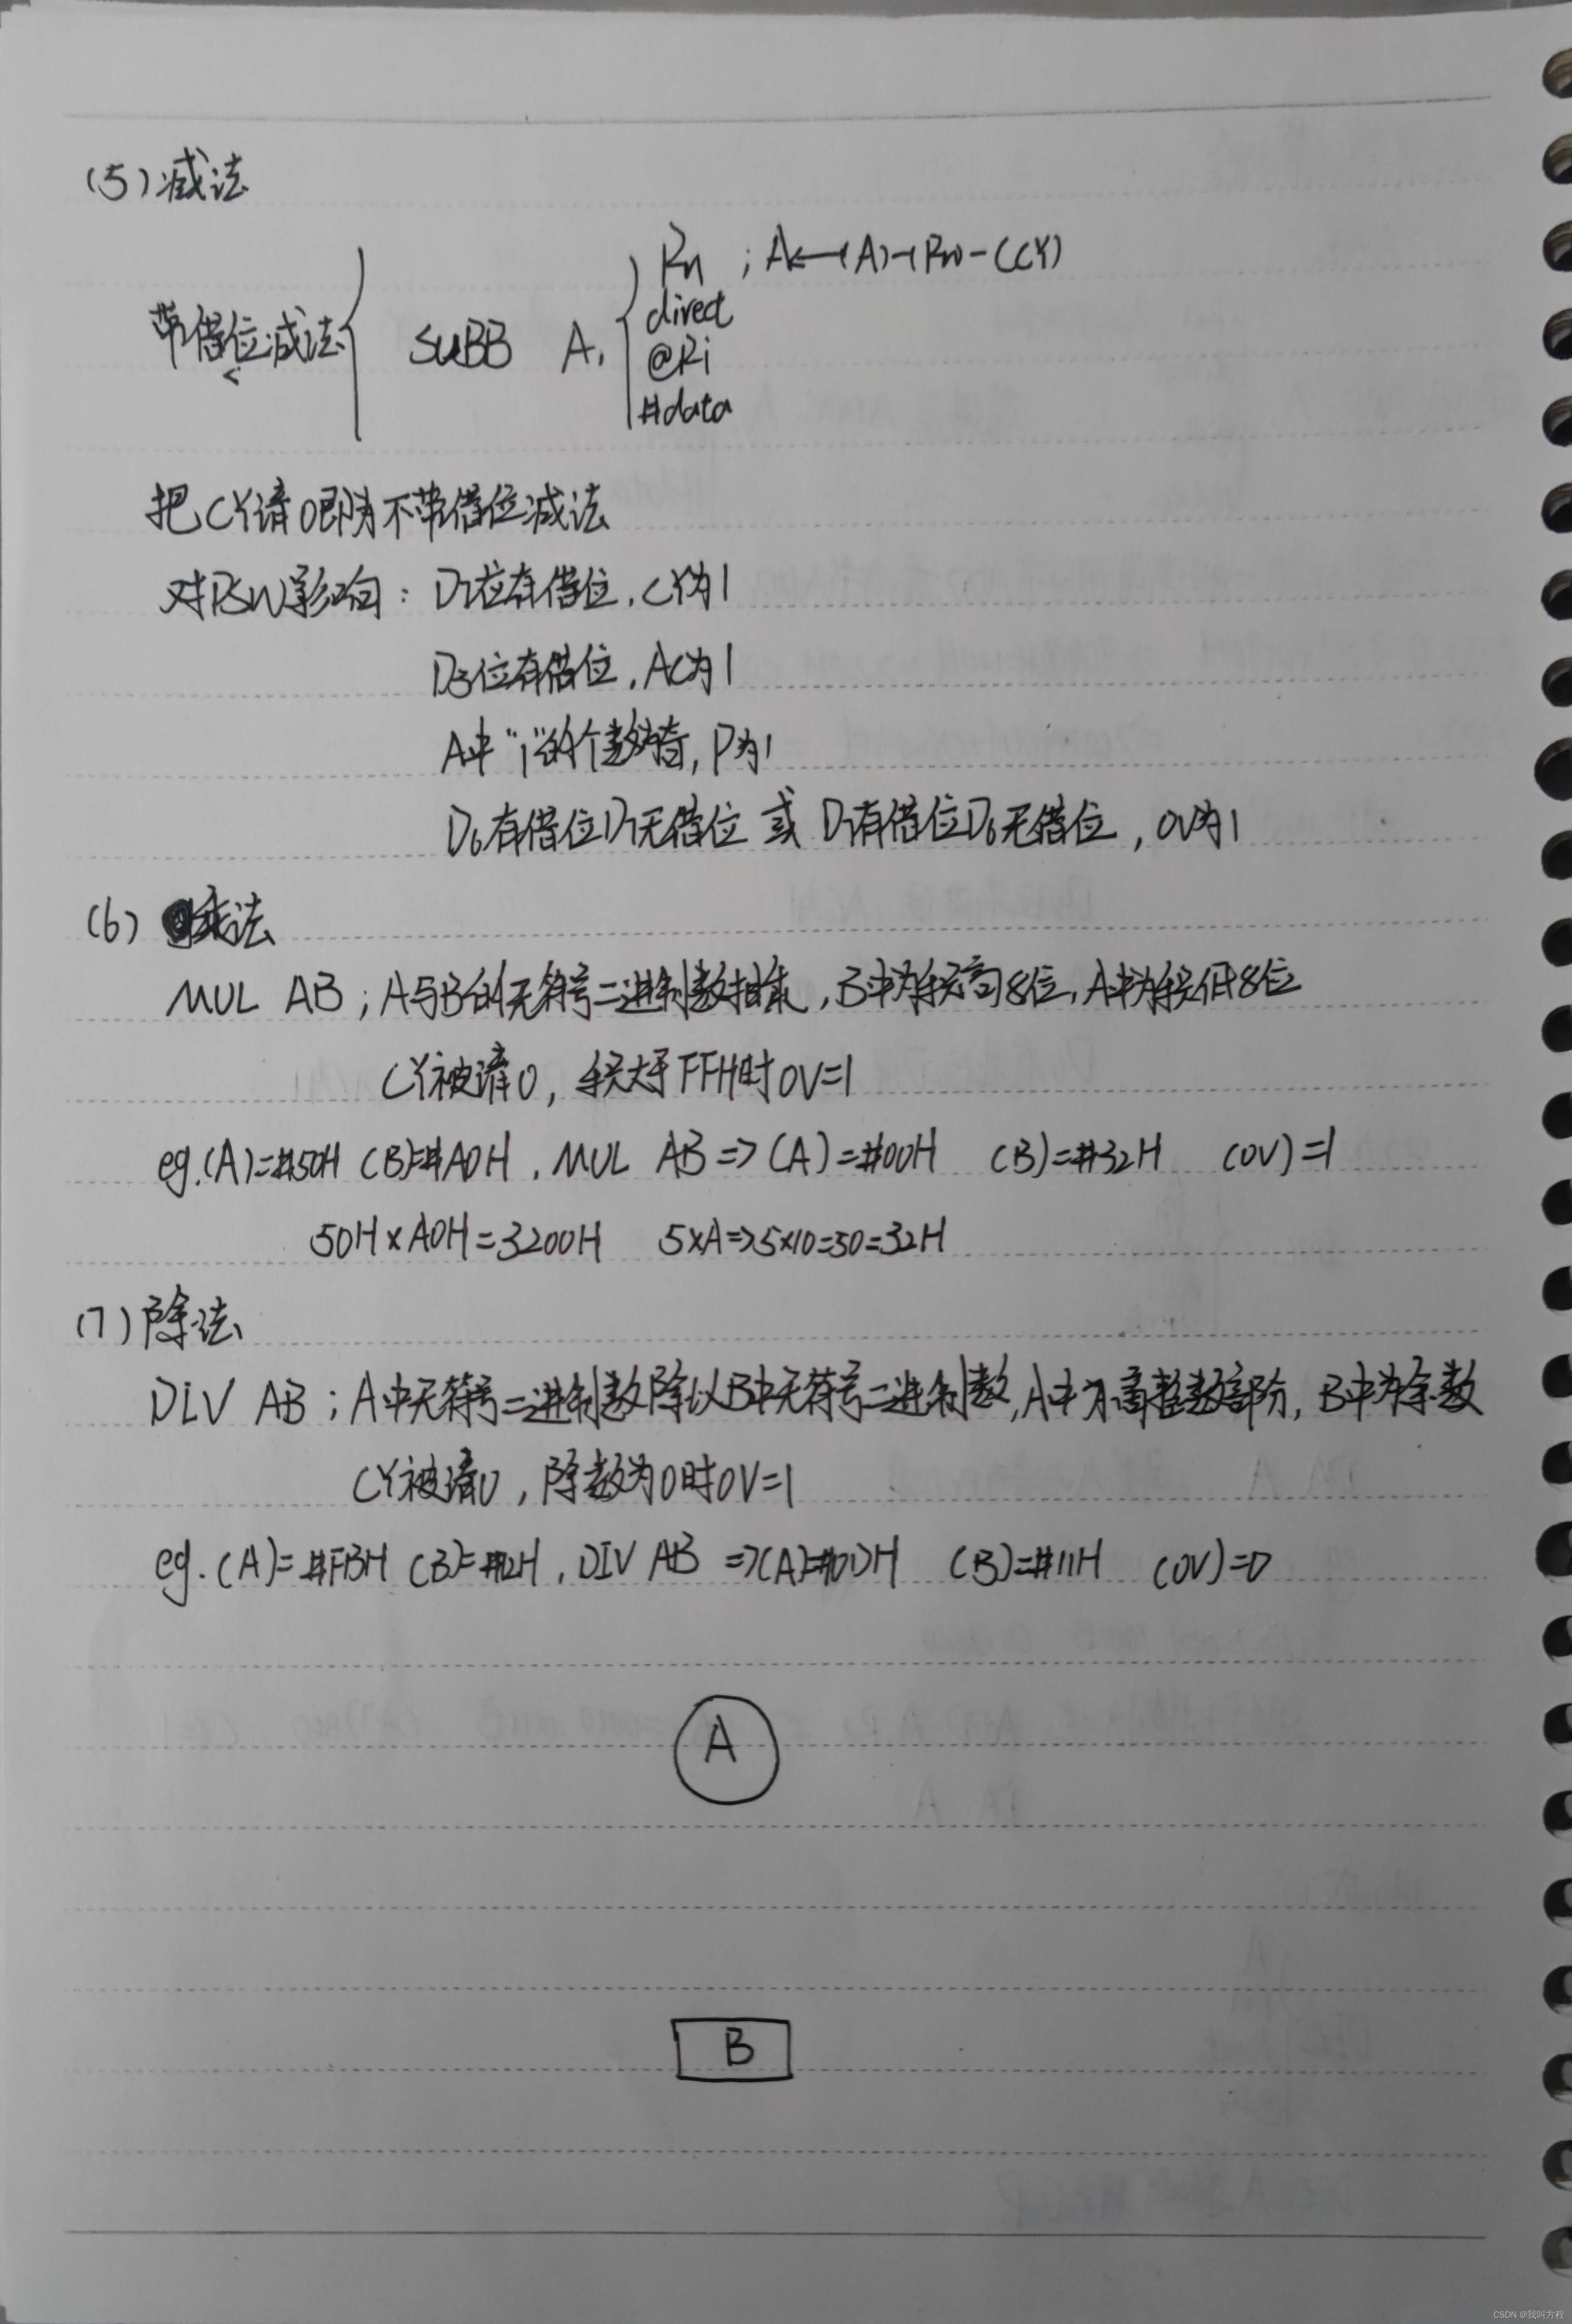 (5) 减法
带借位减法 { SUBB A, { Rn ; A←(A)-(Rn)-(CY)
direct
@Ri
#data
把CY请0即为不带借位减法
对PSW影响: D7位有借位,CY为1
D3位有借位,AC为1
A中"1"的个数为奇,P为1
D6有借位D7无借位 或 D7有借位D6无借位,OV为1
(6) 乘法
MUL AB;A与B的无符号二进制数相乘,B中为积高8位,A中为积低8位
CY被清0,积大于FFH时OV=1
eg.(A)=#50H (B)=#A0H,MUL AB=>(A)=#00H (B)=#32H (OV)=1
50H×A0H=3200H 5×A=>5×10=50=32H
(7) 除法
DIV AB;A中无符号二进制数除以B中无符号二进制数,A中为商整数部分,B中为余数
CY被清0,除数为0时OV=1
eg.(A)=#FBH (B)=#12H,DIV AB =>(A)=#0DH (B)=#11H (OV)=0
A
B
CSDN @我叫方程